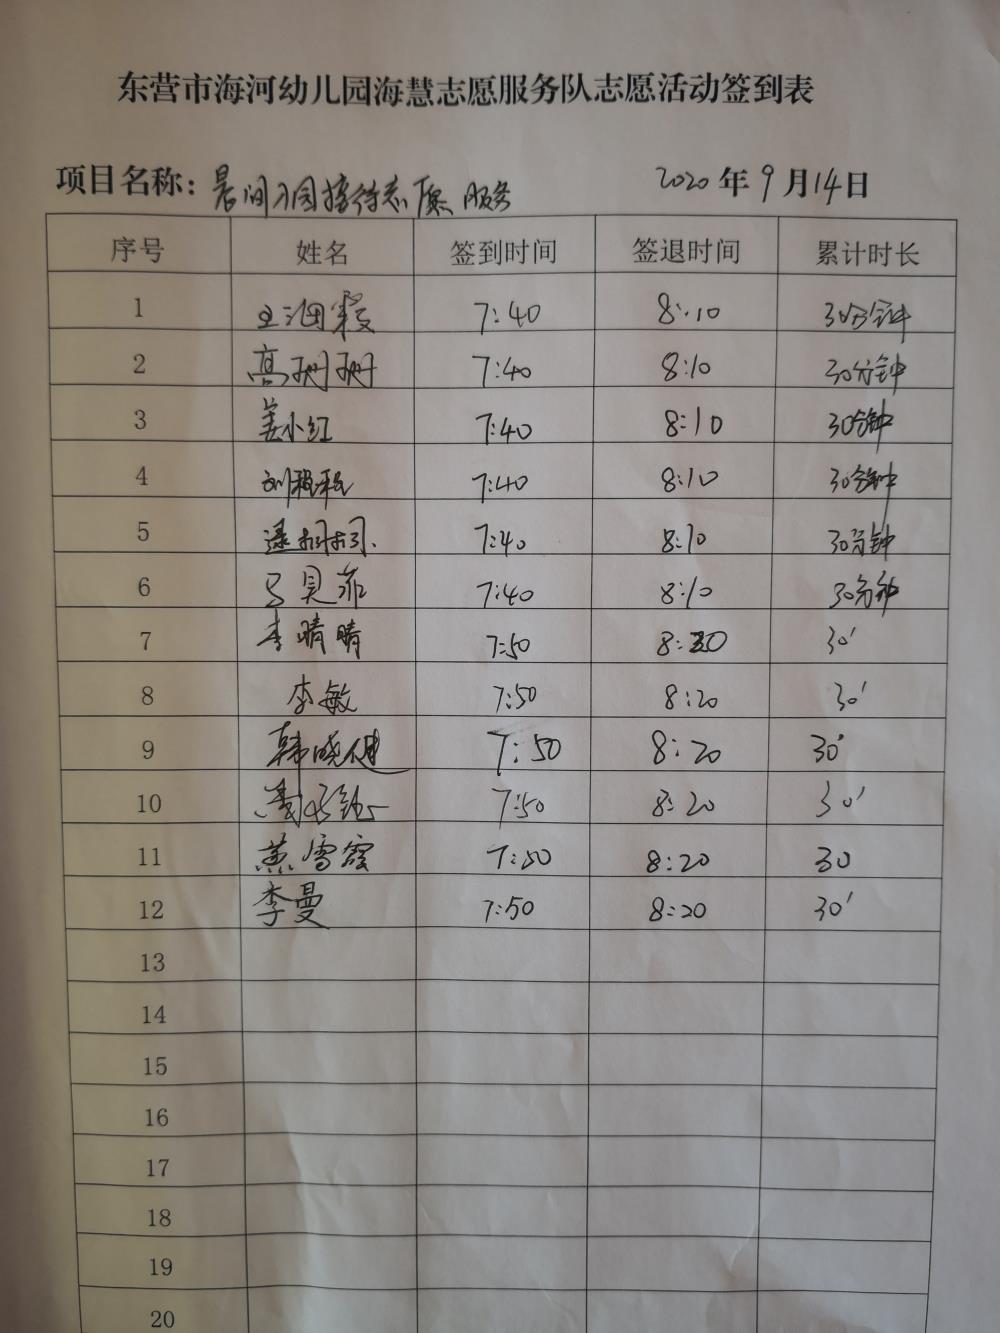 东营市海河幼儿园海慧志愿服务队志愿活动签到表
项目名称：晨间入园接待志愿服务 2020年9月14日
序号 姓名 签到时间 签退时间 累计时长
1 王海霞 7:40 8:10 30分钟
2 高珊珊 7:40 8:10 30分钟
3 姜小红 7:40 8:10 30分钟
4 刘程程 7:40 8:10 30分钟
5 逯栩栩 7:40 8:10 30分钟
6 马贝菲 7:40 8:10 30分钟
7 李晴晴 7:50 8:20 30′
8 李敏 7:50 8:20 30′
9 韩晓健 7:50 8:20 30′
10 7:50 8:20 30′
11 黄雪霞 7:50 8:20 30
12 李曼 7:50 8:20 30′
13
14
15
16
17
18
19
20